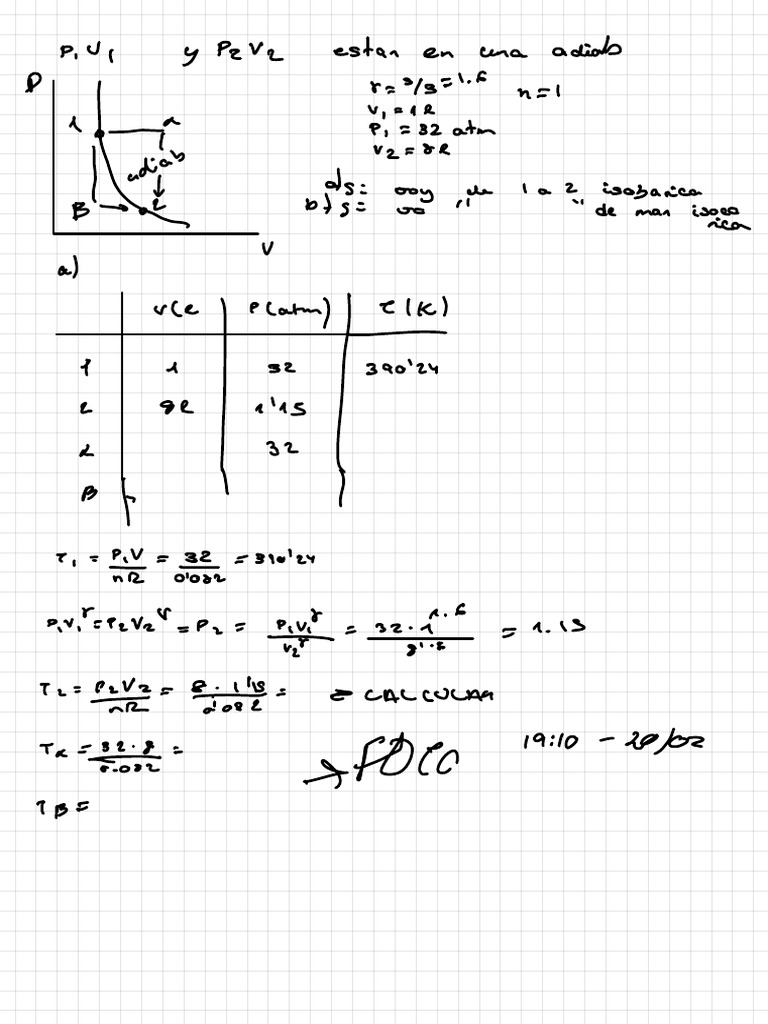 P₁V₁ y P₂V₂ estan en una adiab
P
1 α
adiab
B 2
V
n=1
V₁ = 1l
P₁ = 32 atm
V₂ = 8l
de 1 a 2 isobarica
de man isoco
rica
a)
V(l P(atm) T(K)
1 1 32 390'24
2 8l 1'15
α 32
B
T₁ = P₁V/nR = 32/0'082 = 390'24
P₁V₁^γ = P₂V₂^γ = P₂ = P₁V₁^γ/V₂^γ = 32·1^1.6/8^1.6 = 1.15
T₂ = P₂V₂/nR = 8·1'15/0'082 = CALCULAR
Tα = 32·8/0.082 =
TB =